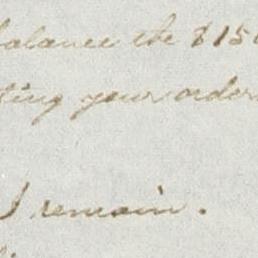 balance the $150
ting your orders
I remain.